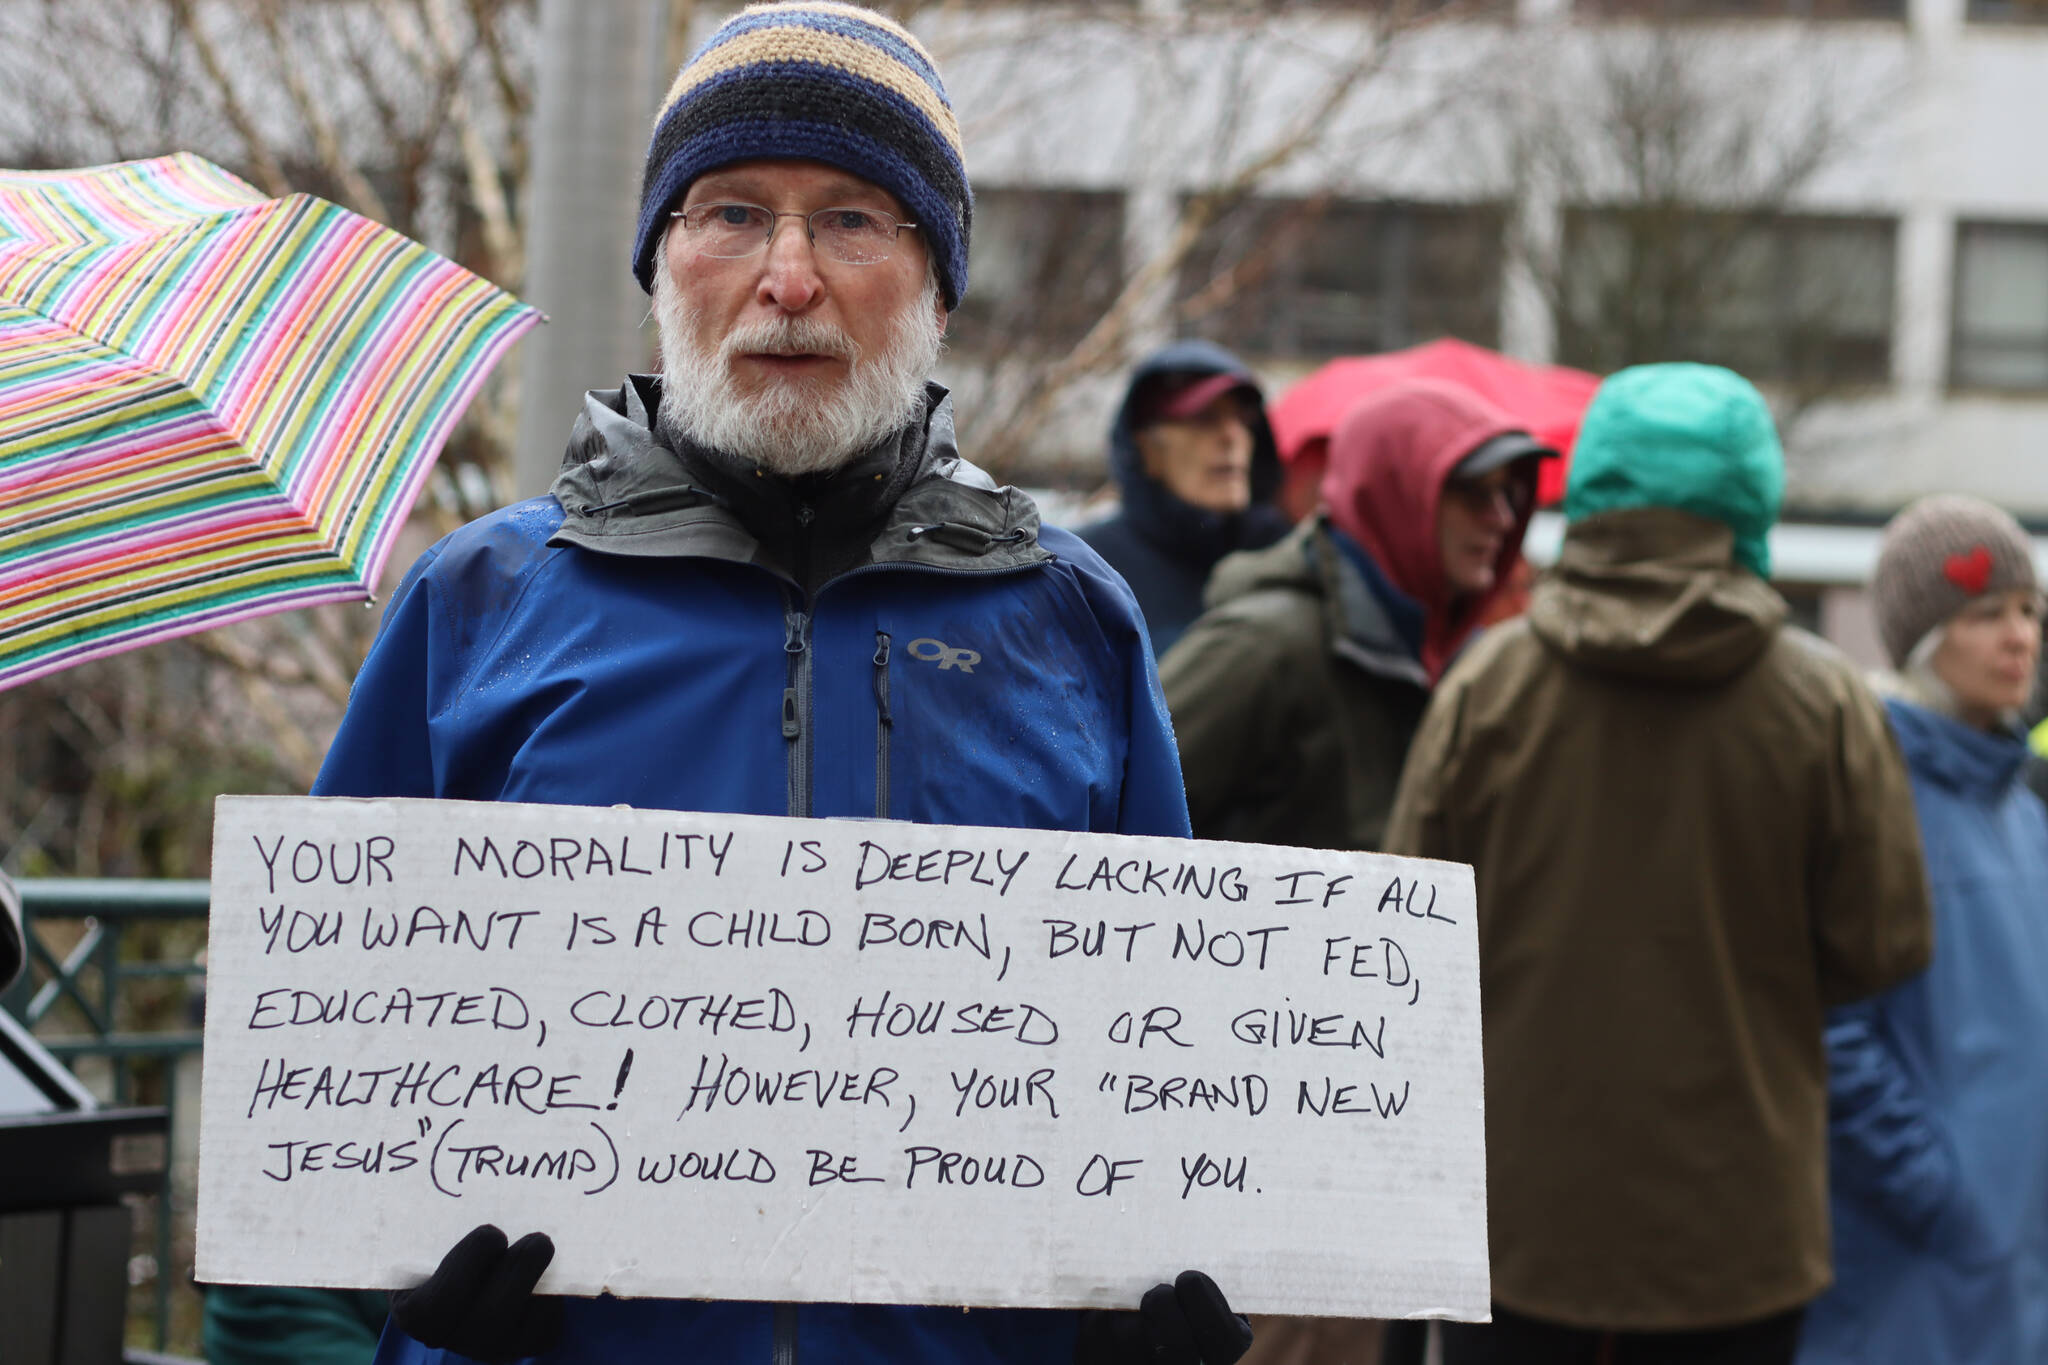 OR
YOUR MORALITY IS DEEPLY LACKING IF ALL
YOU WANT IS A CHILD BORN, BUT NOT FED,
EDUCATED, CLOTHED, HOUSED OR GIVEN
HEALTHCARE! HOWEVER, YOUR "BRAND NEW
JESUS" (TRUMP) WOULD BE PROUD OF YOU.